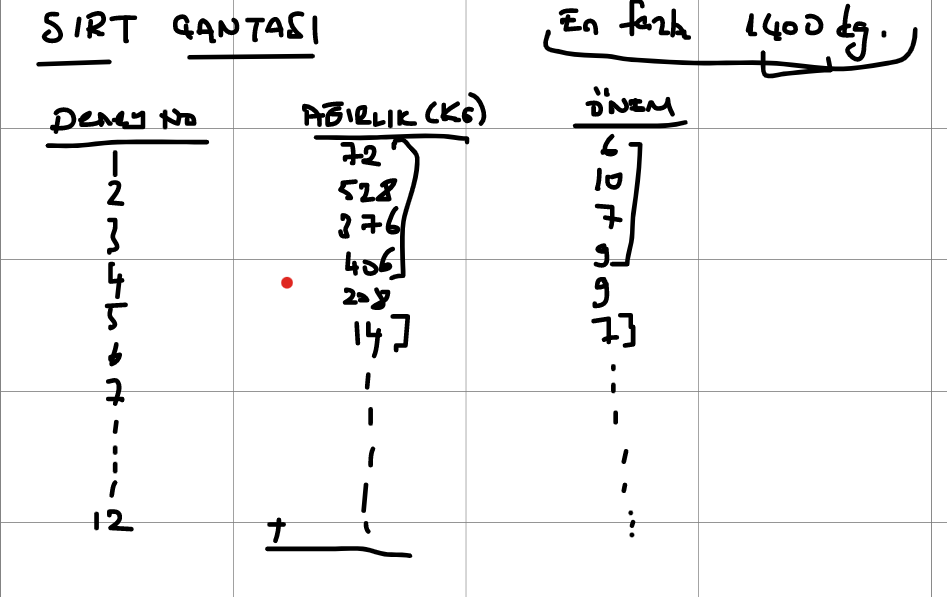 SIRT ÇANTASI
En fazla 1400 kg.
DENEY NO AĞIRLIK (KG) ÖNEM
1 72 6
2 528 10
3 376 7
4 406 9
5 208 9
6 14 7
7
12 +